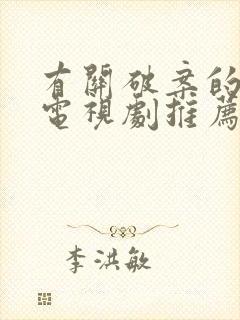 有關破案的
電視劇推薦
李洪敏